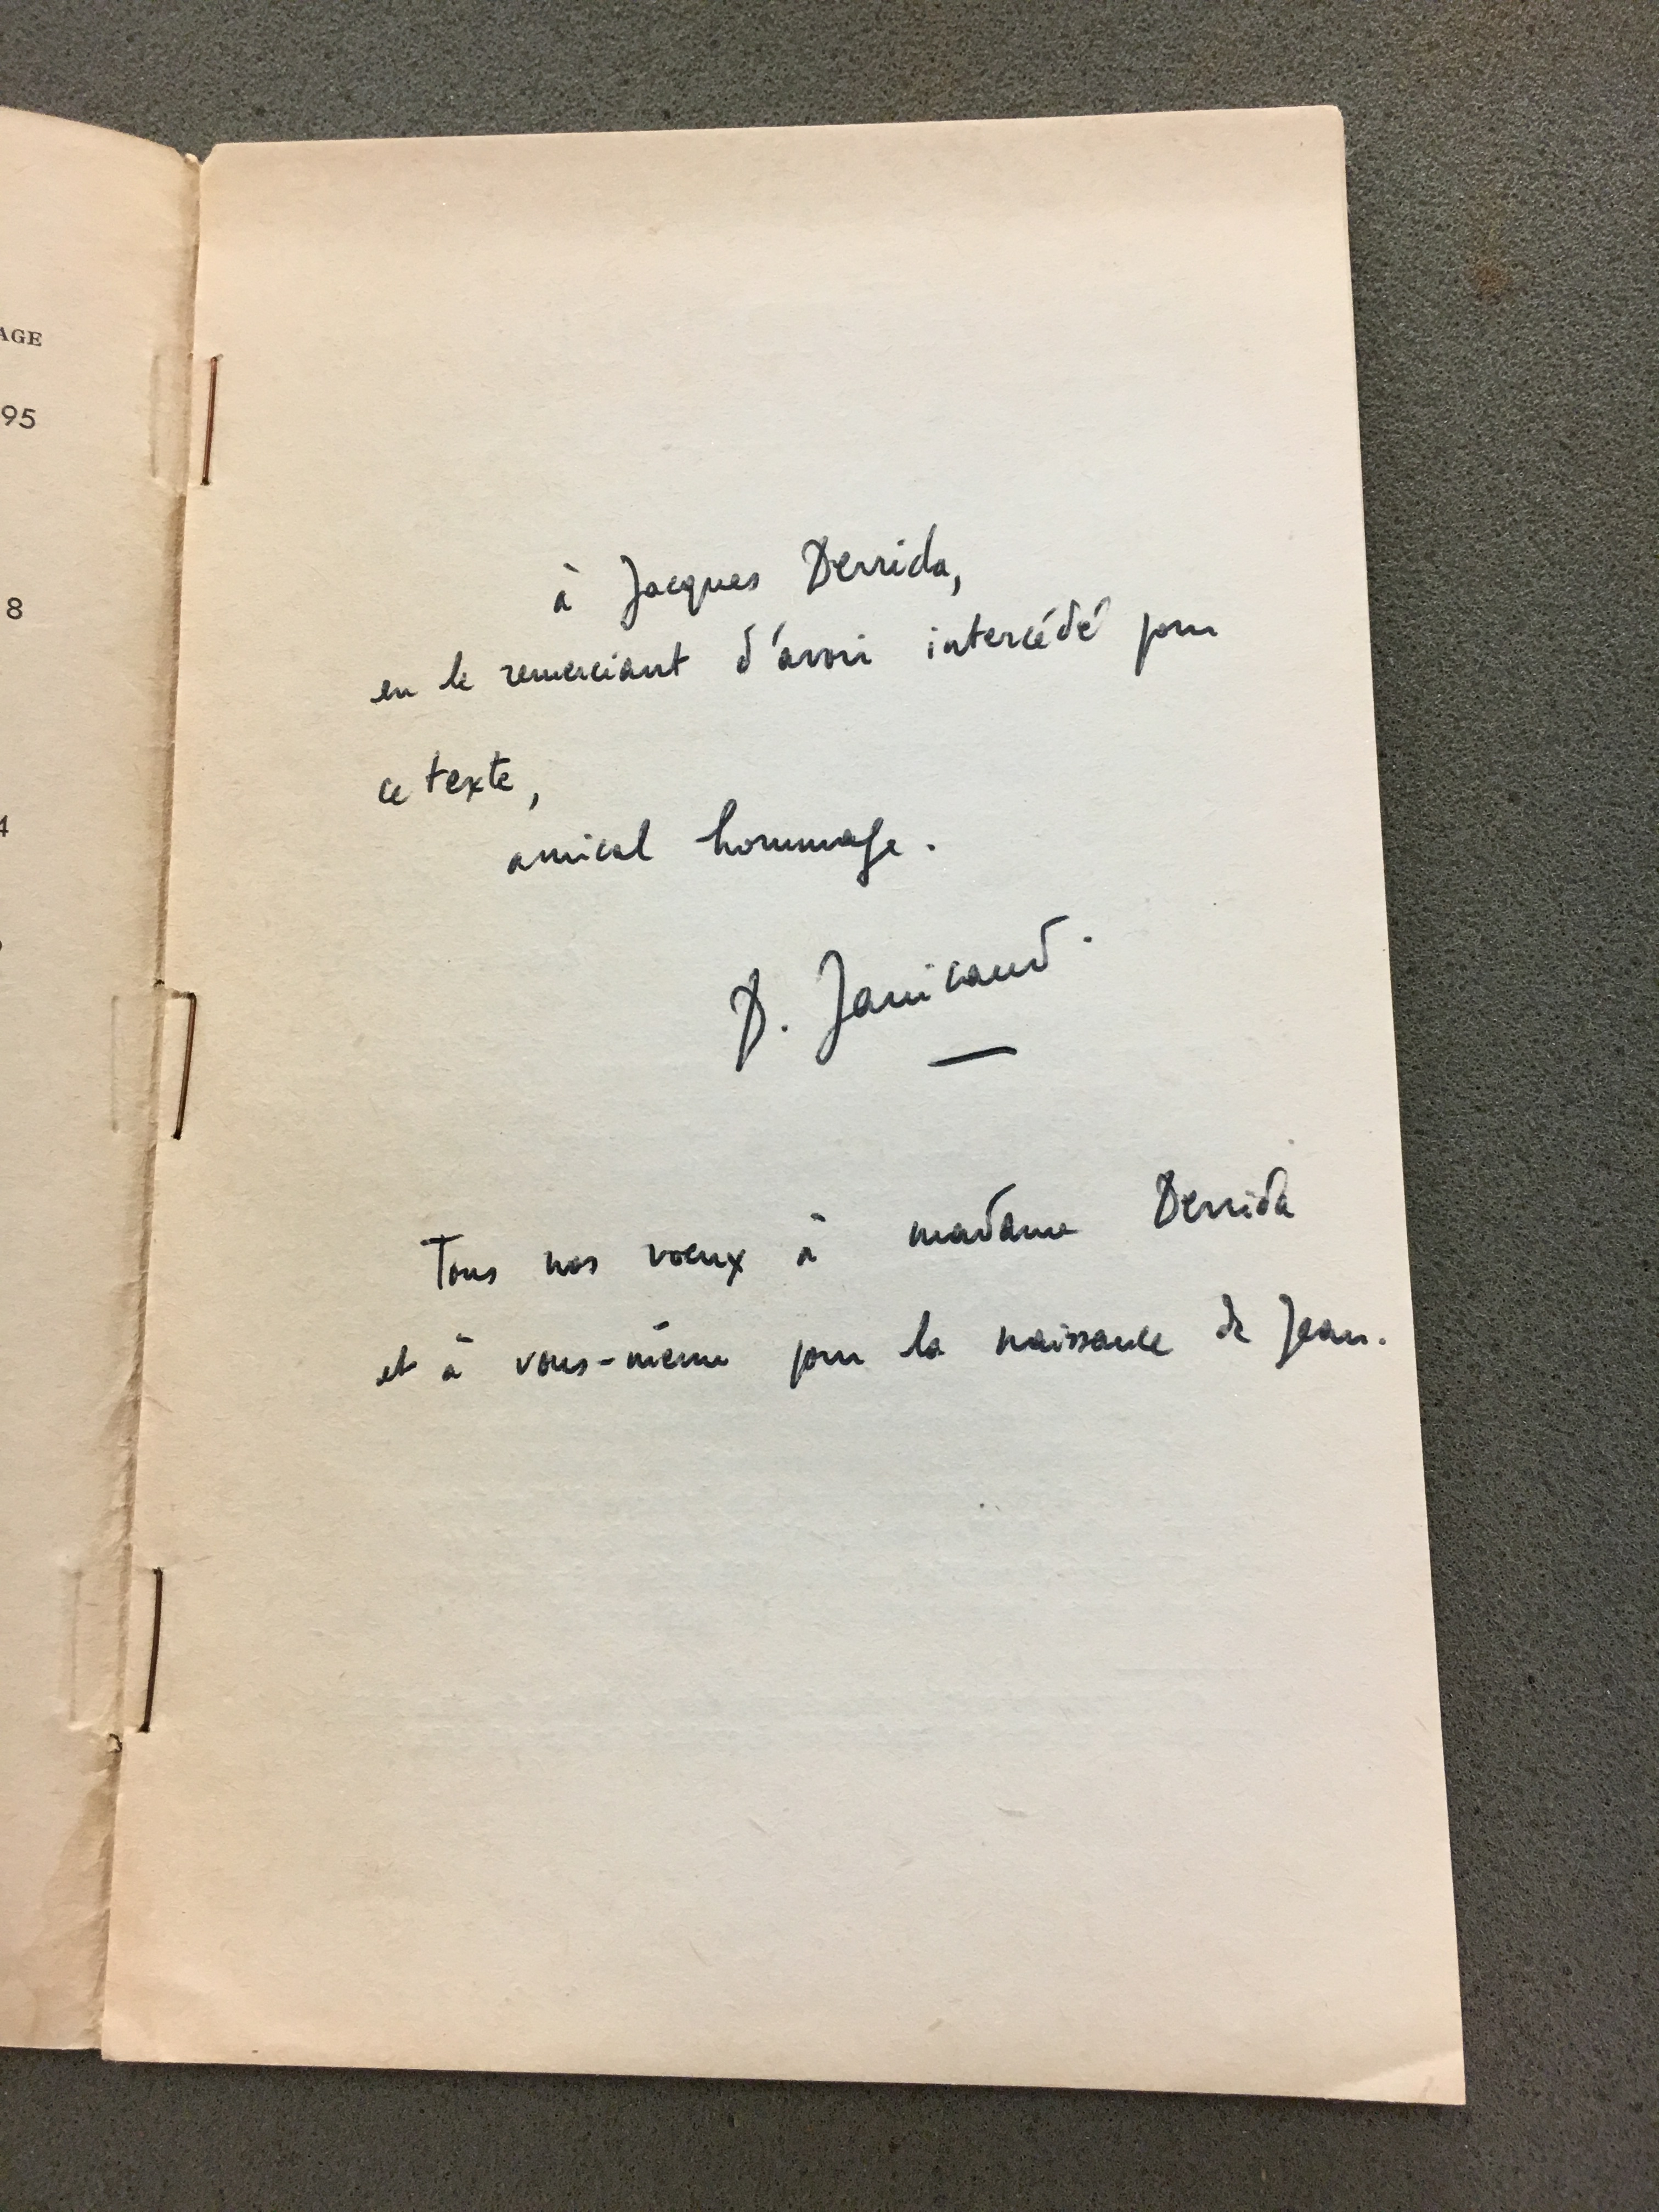 AGE
95
8
4
à Jacques Derrida,
en le remerciant d'avoir intercédé pour
ce texte,
amical hommage.
D. Janicaud.
Tous nos voeux à madame Derrida
et à vous-même pour la naissance de Jean.